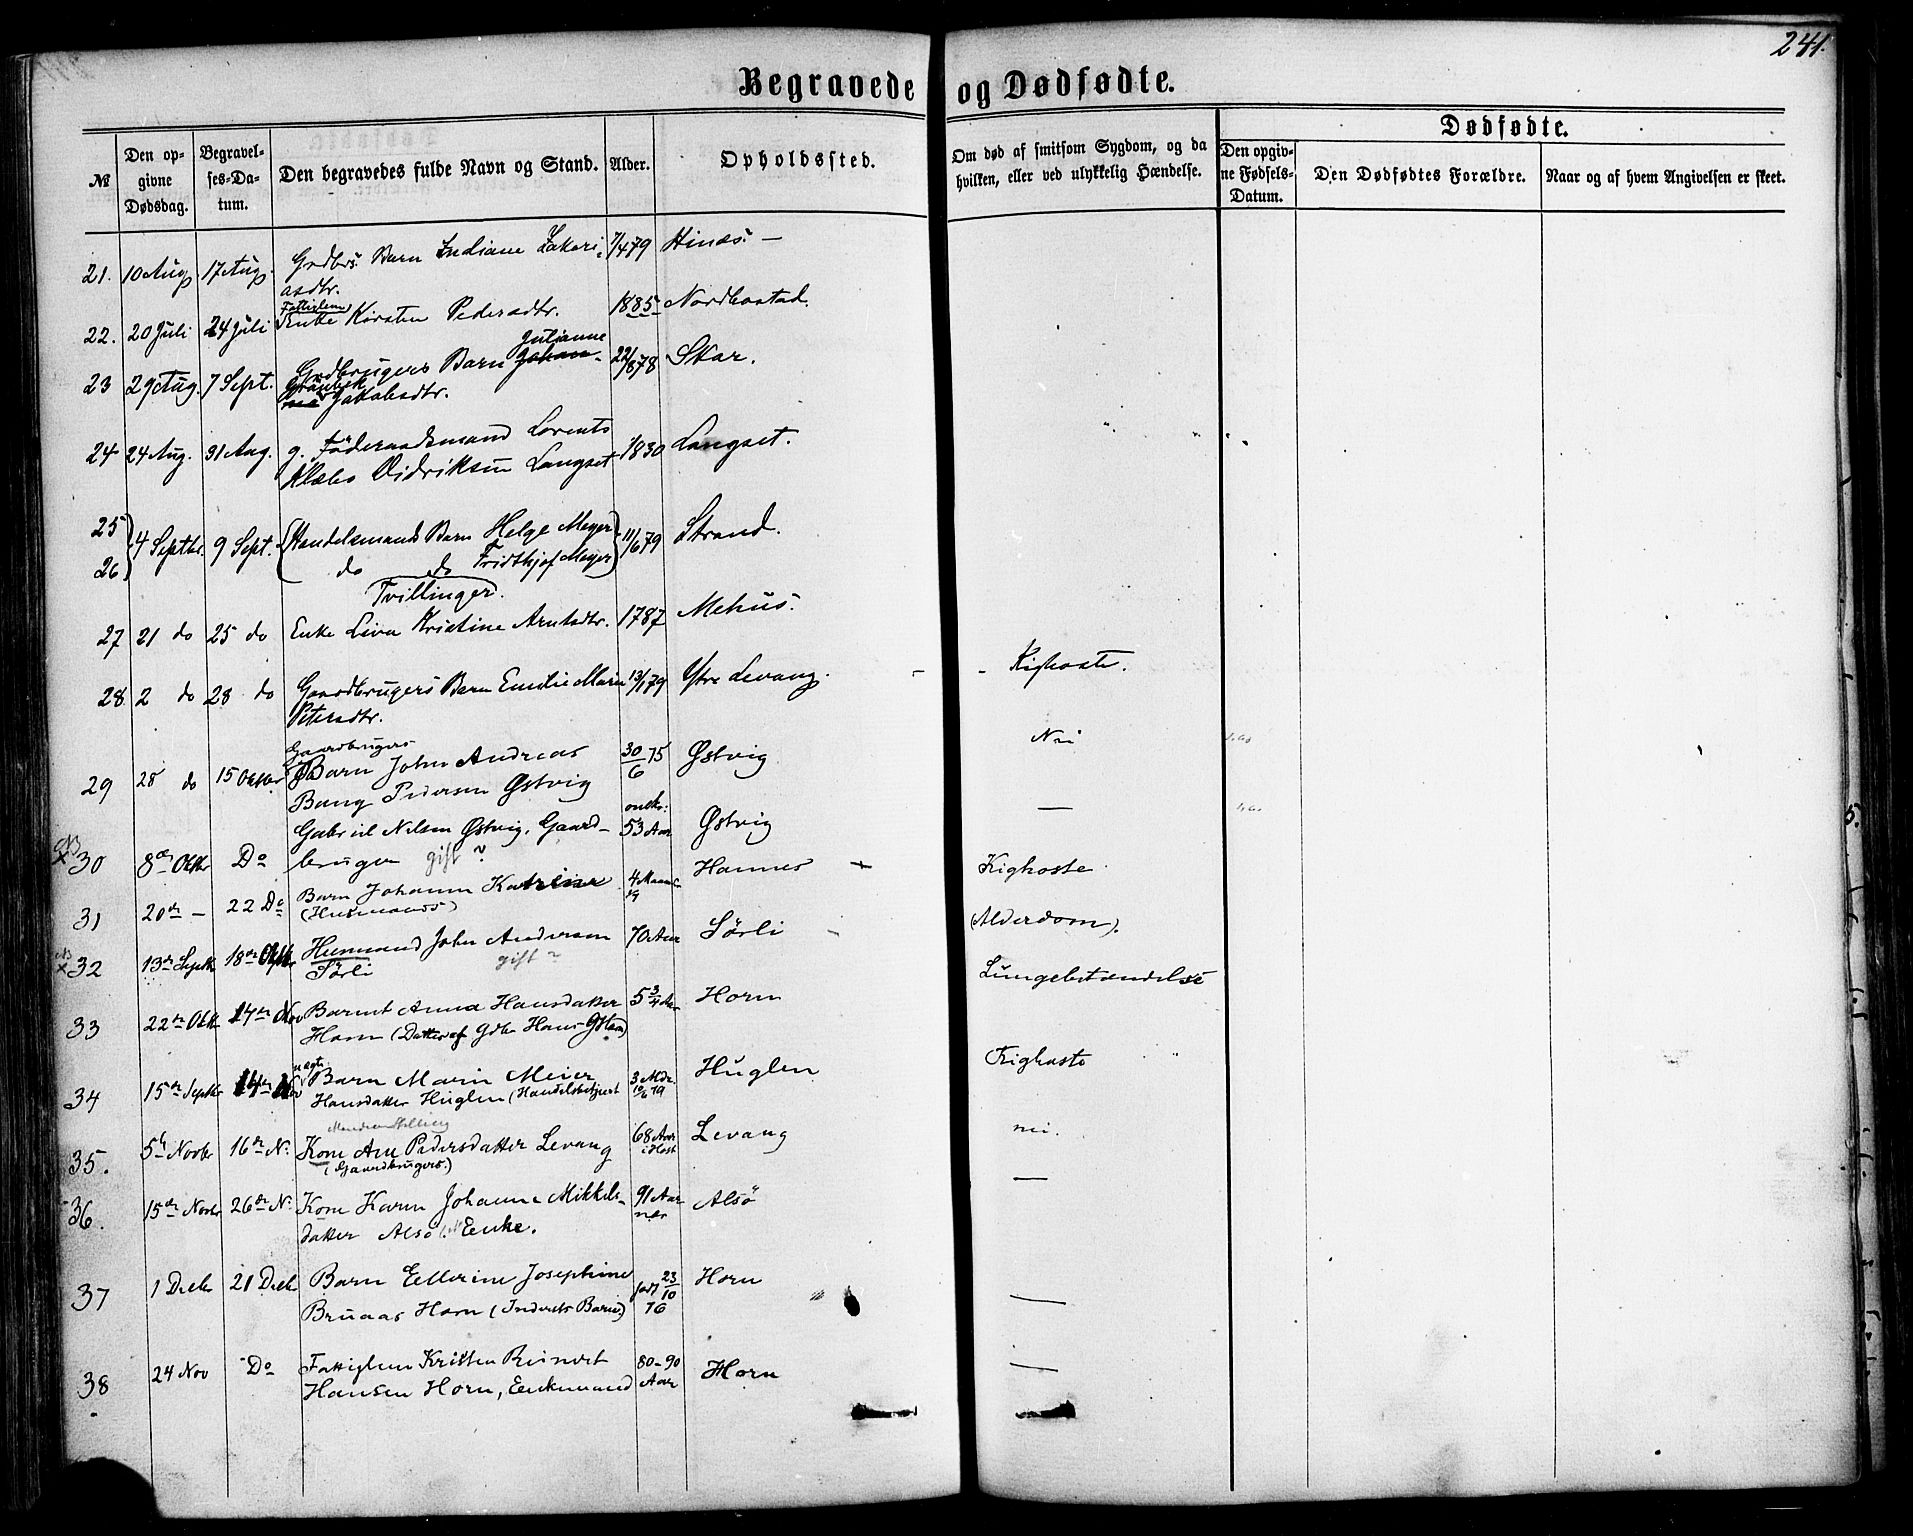 241.
Begravede og Dødfødte.
№
Den opgivne Dødsdag.
Begravelses-Datum.
Den begravedes fulde Navn og Stand.
Alder.
Opholdssted.
Om død af smitsom Sygdom, og da hvilken, eller ved ulykkelig Hændelse.
Dødfødte.
Den opgivne Fødsels-Datum.
Den Dødfødtes Forældre.
Naar og af hvem Angivelsen er skeet.
21. 10 Aug 17 Aug. Grdbrs. Barn Indiane Zakari- 7/4 79 Hinæs. —
asdtr.
Fattiglem
22. 20 Juli 24 Juli Enke Kirsten Pedersdtr. 1885 Nordbostad.
Julianne
23 29 Aug. 7 Sept. Grdbrugers Barn Johan- 22/8 78 Skar.
Jakobsdtr.
24 24 Aug. 31 Aug. g. Föderaadsmand Lorents 1830 Langset.
Klæbo Didriksen Langset
25 4 Septbr. 9 Sept. Handelsmands Barn Helge Meyer 11/6 79 Strand.
26 do do Fridthjof Meyer
Tvillinger.
27 21 do 25 do Enke Liva Kristine Arntsdtr. 1787 Mehus.
28. 2 do 28 do Gaardbrugers Barn Emilie Marie 13/1 79 Ytre Levang. - - Kighoste.
Petersdtr.
Gaardbrugers
29 28 do 15 Oktbr Barn John Andreas 30/6 75 Østvig Nei
Bang Pedersen Østvig
NB × 30 8de Oktbr Do Gabriel Nilsen Østvig, Gaard- 53 Aar Østvig —
bruger gift?
31 20de — 22 Do Barn Johanna Katrine 4 Maan. Hannes Kighoste
(Husmands)
NB × 32 13de Septbr 18de Oktbr Husmand John Andersen 70 Aar Sörli - (Alderdom).
Sörli gift?
33 22de Oktbr 17de Nov Barnet Anna Hansdatter 5 3/4 Aar Horn Lungebetændelse
Horn (Datter af Gdbr Hans G Horn)
uegte
34 15de Septbr 17de Nov Barn Marin Meier 3 Mdr. 10/6 79 Huglen Kighoste
Hansdatter Huglen (Handelsbetjent
35. 5te Novbr 16de N. Kone Ane Pedersdatter Levang 68 Aar i Høst Levang nei.
(Gaardbrugers.)
36. 15de Novbr 26de N. Kone Karen Johanna Mikkels- 91 Aar nær Alsö —
datter Alsö Enke.
37 1 Decbr 21 Decbr Barn Ellerine Josephine født 23/10 76 Horn —
Bruaas Horn (Inderets Barn.)
38 24 Nov Do Fattiglem Kristen Reinert 80-90 Aar Horn —
Hansen Horn, Enkemand